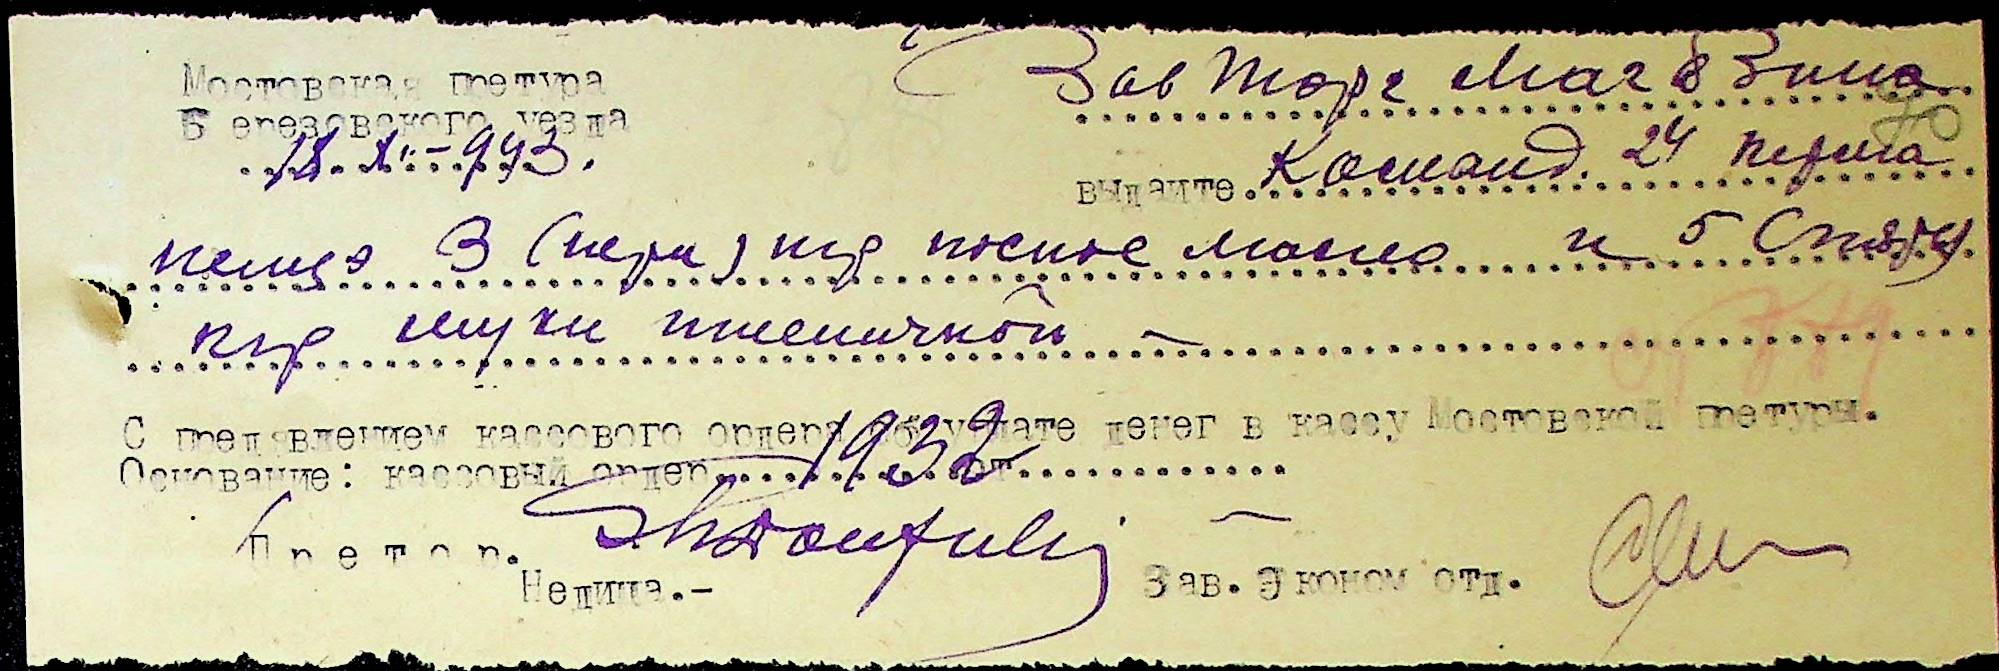 Мостовская претура
Березовского уезда
18.XI.-943.
Зав Торг Магазина
90
выдаите Команд. 24
3 (кгр) кгр постное масло и 5 (пять)
кгр муки пшеничной –
С пред'явлением кассового ордера об уплате денег в кассу Мостовской претуры.
Основание: кассовый ордер 1932 от
Претор.
Недица.-
Зав. Эконом отд.